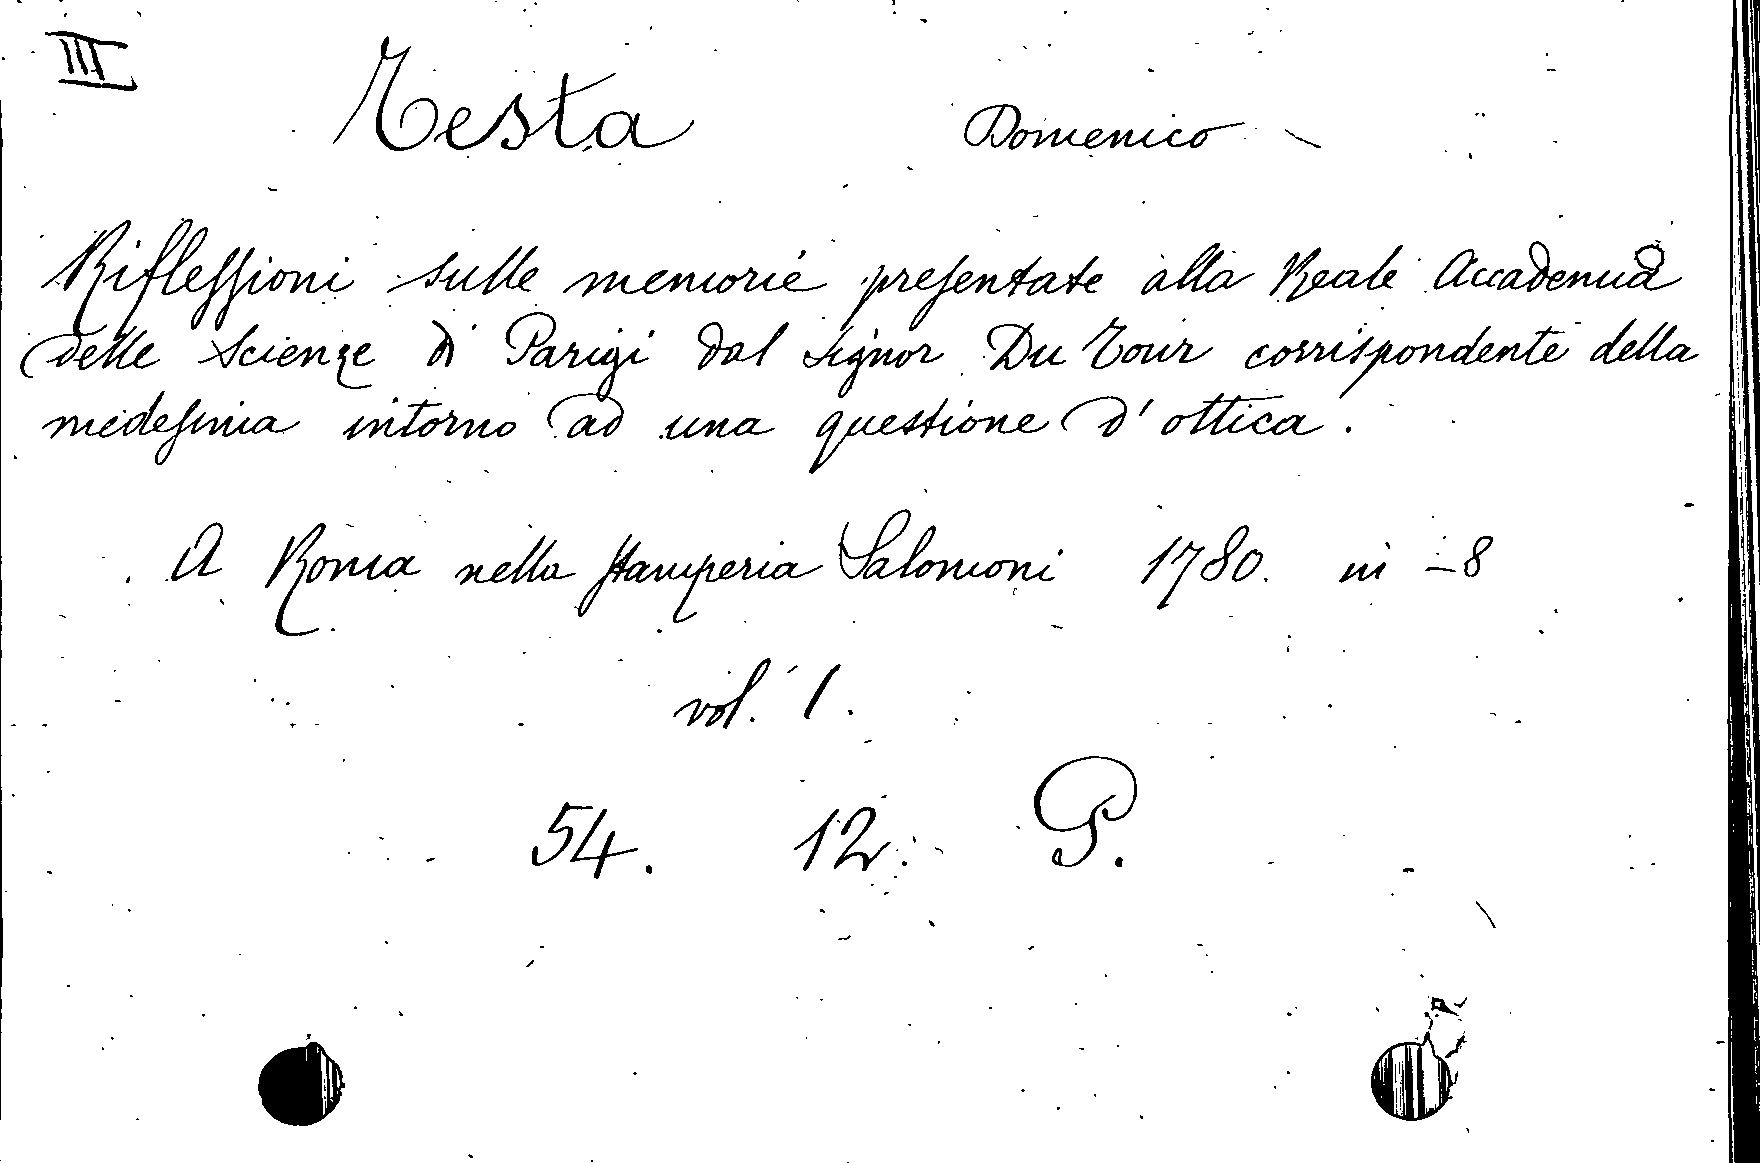 III
Testa Domenico
Riflessioni sulle memorie presentate alla Reale Accademia
delle Scienze di Parigi dal signor Du Tour corrispondente della
medesima intorno ad una questione d'ottica.
A Roma nella stamperia Salomoni 1780. in -8
vol. 1.
54. 12. G.